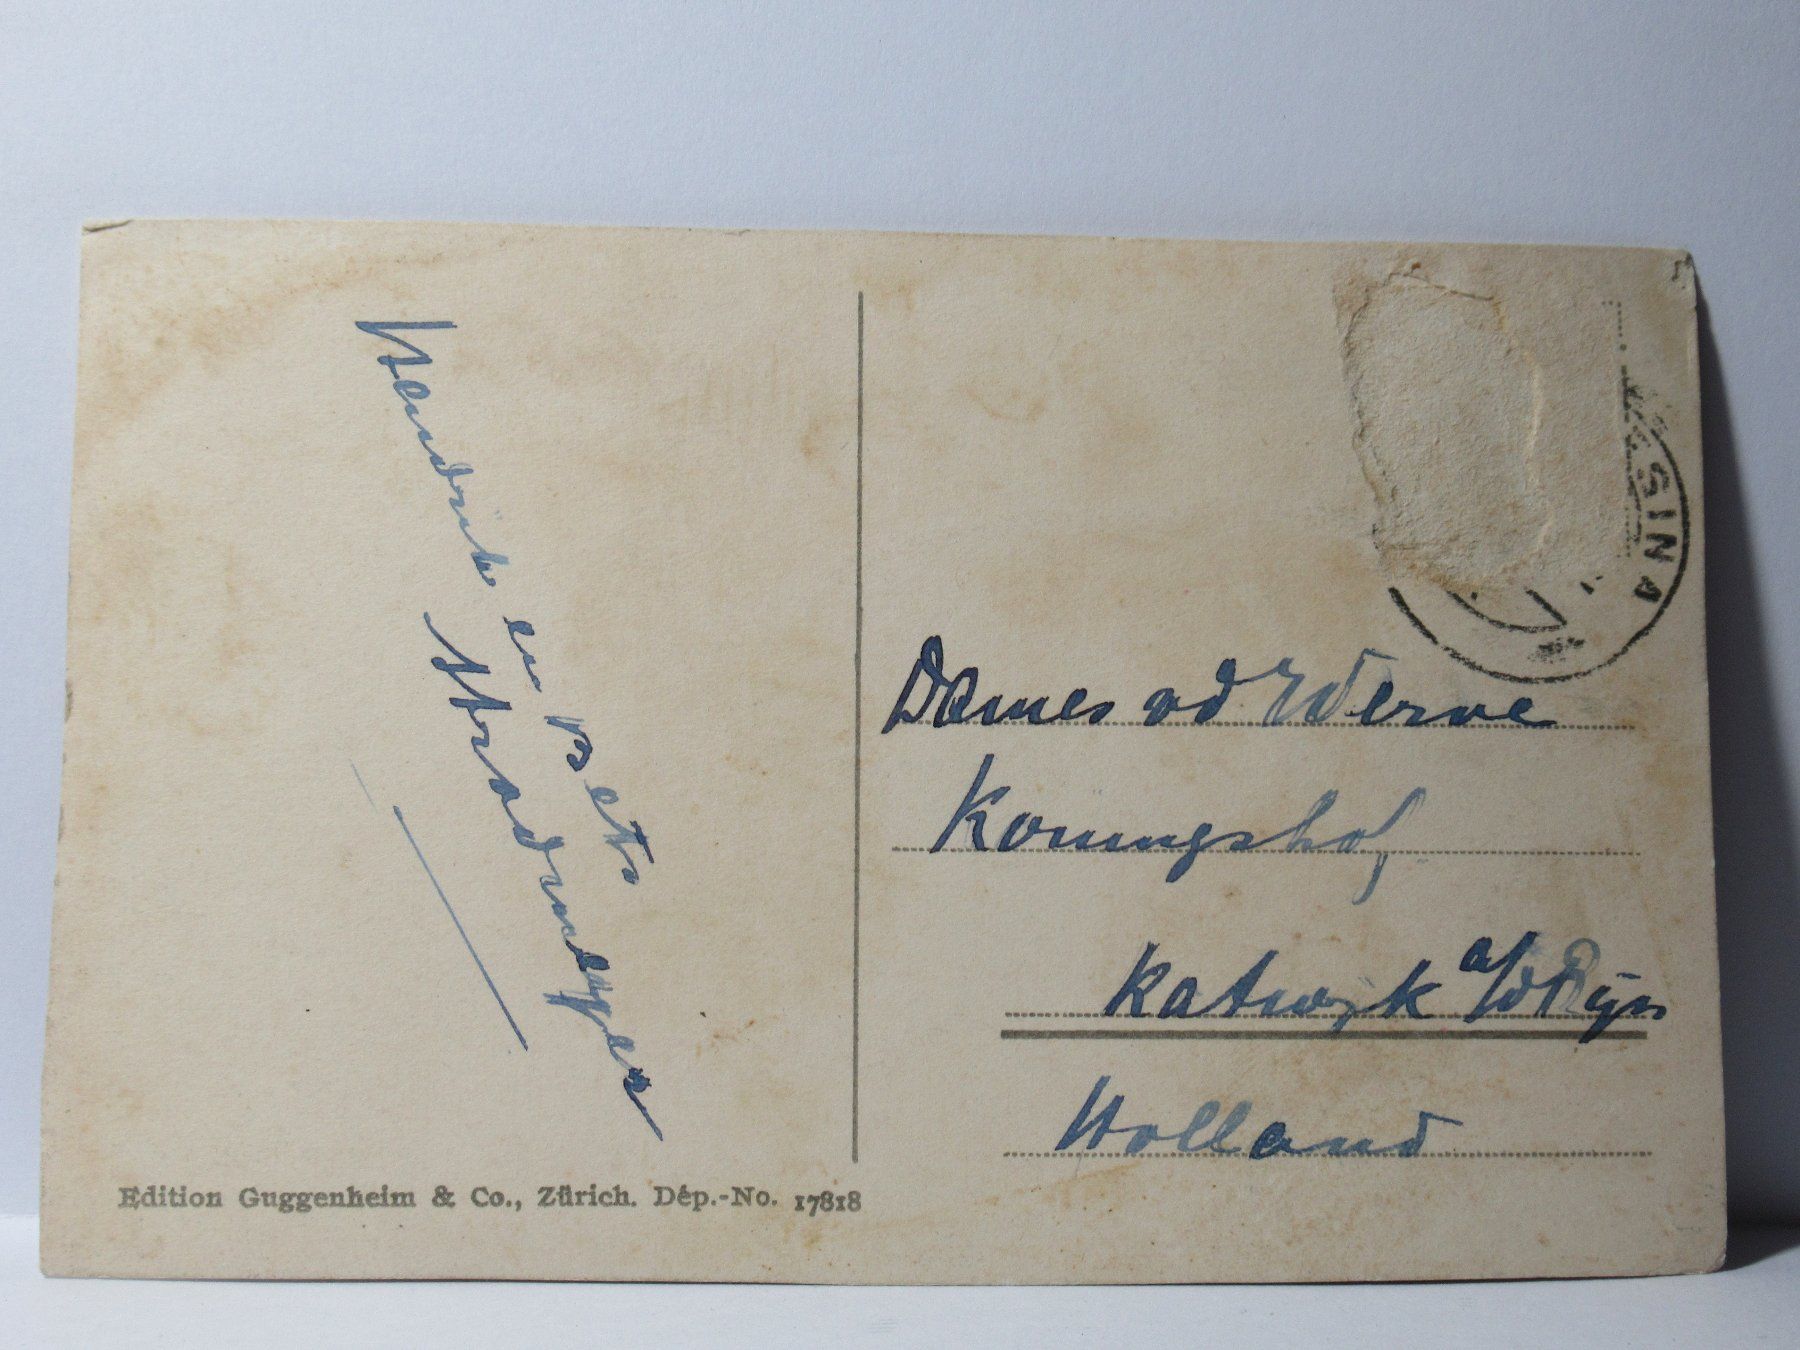 Hendrik en Bets
Dames vd Werve
Koningshof
Katwyk a/d Rijn
Holland
SINA
Edition Guggenheim & Co., Zürich. Dép.-No. 17818